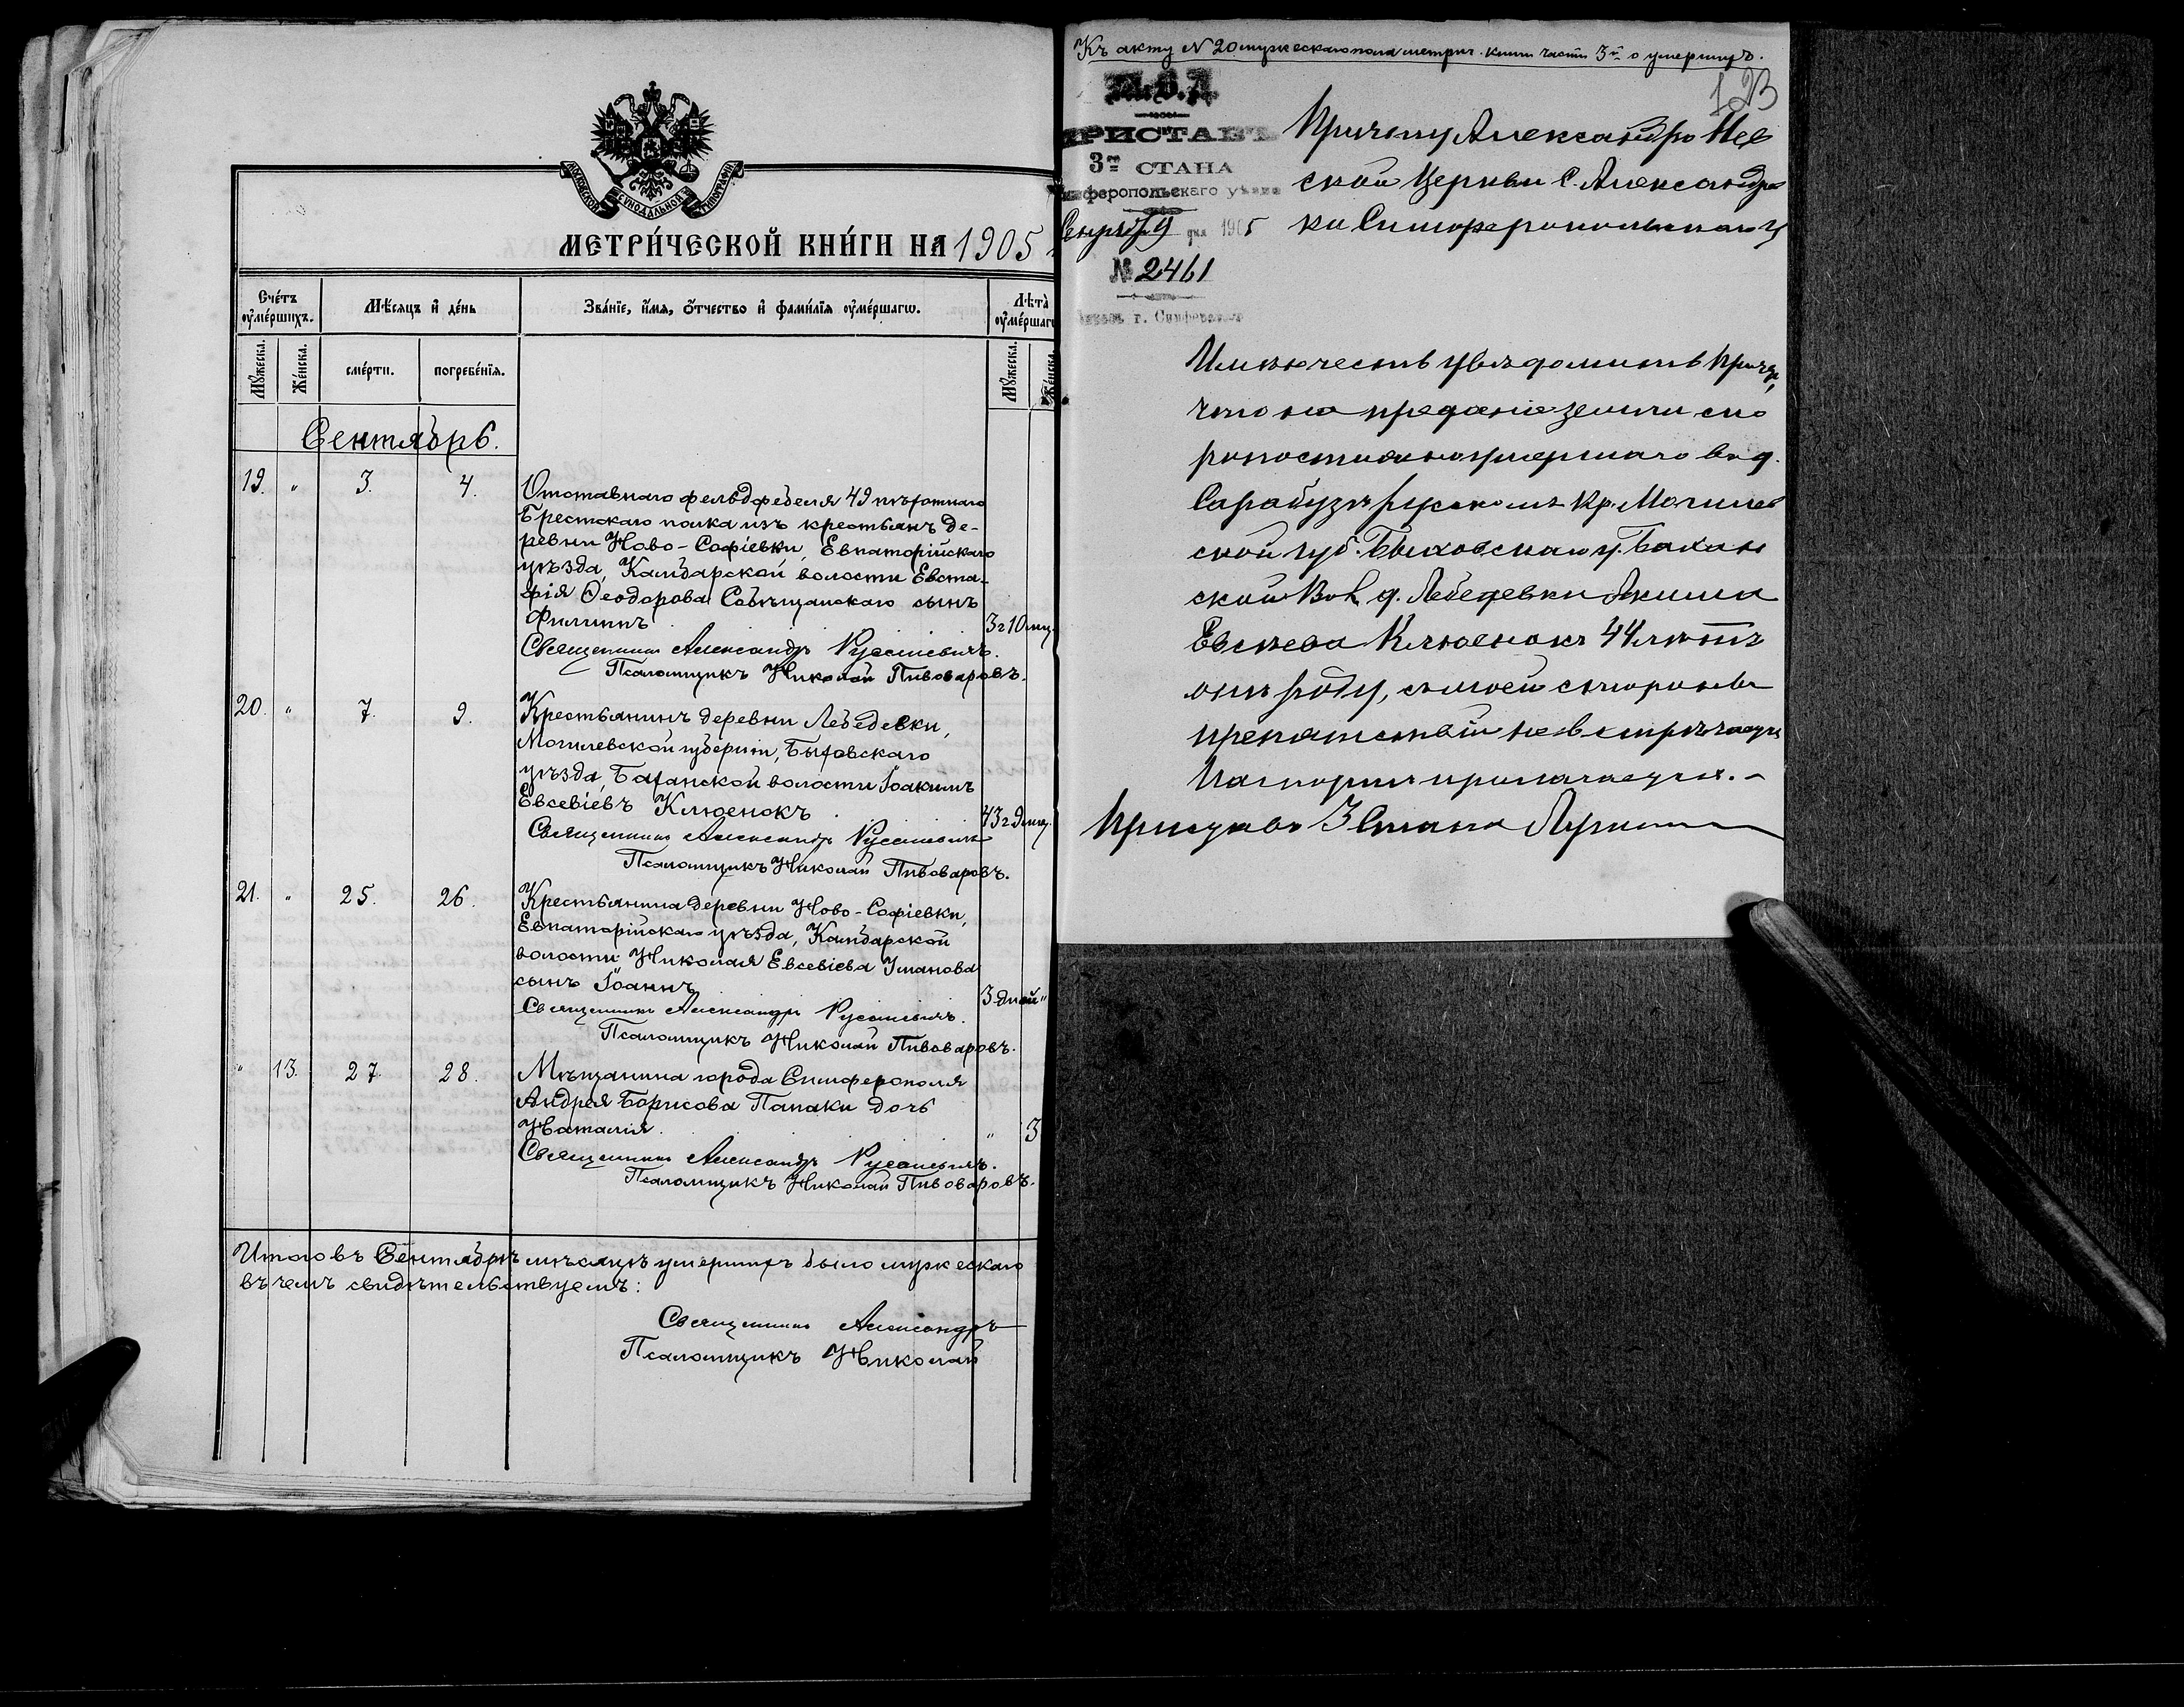 МОСКОВСКОЙ СѴНОДАЛЬНОЙ ТИПОГРАФІИ
МЕТРИ́ЧЕСКОЙ КНИ́ГИ НА 1905
Счéтъ оу҆мéршихъ.
Мѣ́сяцъ и҆ дéнь
Звáнїе, и҆́мя, ѻ҆́тчество и҆ фами́лїя оу҆мéршагѡ.
Лѣтà оу҆мéршагѡ
Мꙋ́жеска.
Жéнска.
смéрти.
погребéнїя.
Мꙋ́жеска.
Жéнска.
Сентябрь.
19. " 3. 4. Отставнаго фельдфебеля 49 пѣхотнаго
Брестскаго полка изъ крестьянъ де-
ревни Ново-Софіевки, Евпаторійскаго
уѣзда, Камбарской волости Евста-
фія Ѳеодорова Собѣщанскаго сынъ
Филиппъ 3 г 10 мц.
Священникъ Александръ
Псаломщикъ Николай Пивоваровъ.
20. " 7. 9. Крестьянинъ деревни Лебедевки,
Могилевской губерніи, Быховскаго
уѣзда, Баханской волости Іоакимъ
Евсевіевъ Клюенокъ 43 г 9 мц.
Священникъ Александръ
Псаломщикъ Николай Пивоваровъ.
21. " 25. 26. Крестьянина деревни Ново-Софіевки,
Евпаторійскаго уѣзда, Камбарской
волости Николая Евсевіева Уманова
сынъ Іоаннъ 3 дней "
Священникъ Александръ
Псаломщикъ Николай Пивоваровъ.
" 13. 27 28. Мѣщанина города Симферополя
Андрея Борисова Папаки дочь
Наталія. " 3
Священникъ Александръ
Псаломщикъ Николай Пивоваровъ.
Итого въ Сентябрѣ мѣсяцѣ умершихъ было мужескаго
въ чемъ свидѣтельствуемъ:
Священникъ Александръ
Псаломщикъ Николай
Къ акту № 20 мужескаго пола метрич. книги части 3й о умершихъ.
123
М.В.Д.
ПРИСТАВЪ
3го СТАНА
Симферопольскаго уѣзда
9 дня 1905
№ 2461
г. Симферополь
Причту Александро Нев
ской Церкви С. Александров
ки Симферопольскаго у
Имѣю честь увѣдомить Причтъ,
что на преданіе земли ско
ропостижно умершаго въ д.
Сарабузъ Русскомъ Кр. Могилев
ской губ. Быховскаго у. Бахан
ской Вол. д. Лебедевки Акима
Евсѣева Клюенокъ 44 лѣтъ
отъ роду, съ моей стороны
препятствій не встрѣчается
Паспортъ прилагается. -
Приставъ 3 Стана